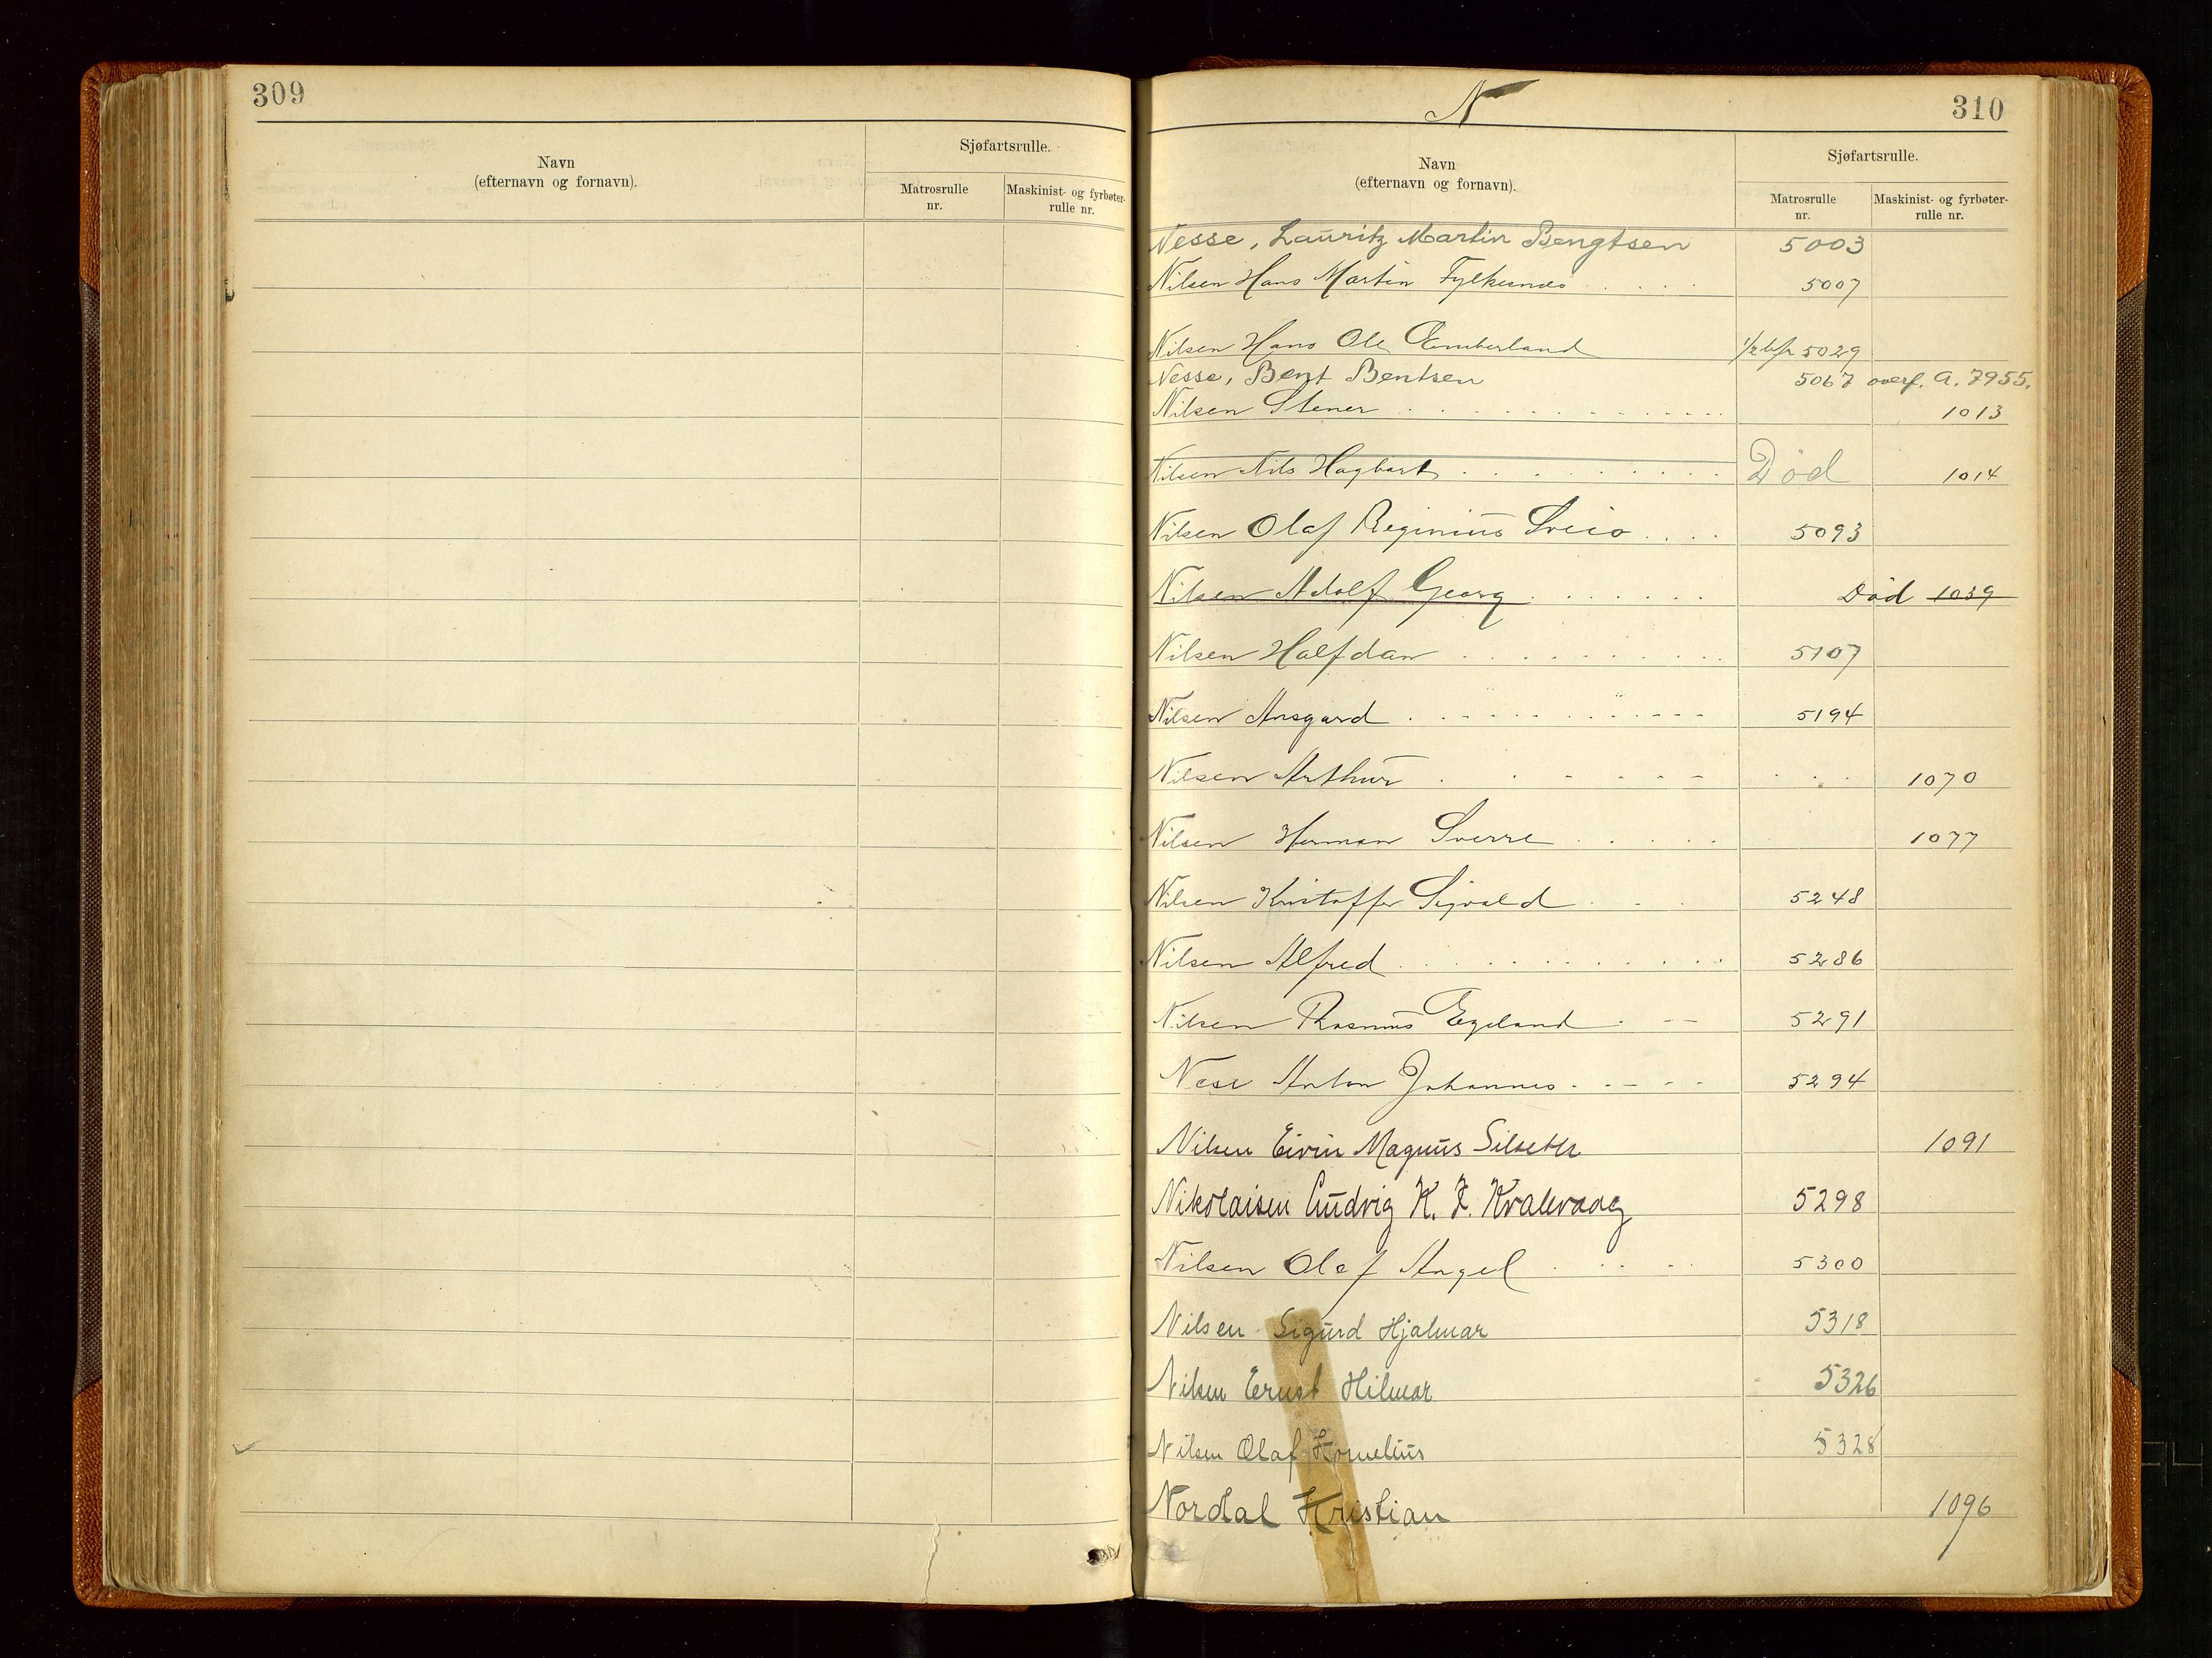 309
Navn
(efternavn og fornavn).
Sjøfartsrulle.
Matrosrulle
nr.
Maskinist- og fyrbøter-
rulle nr.
N
310
Navn
(efternavn og fornavn).
Sjøfartsrulle.
Matrosrulle
nr.
Maskinist- og fyrbøter-
rulle nr.
Nesse, Lauritz Martin Bengtsen 5003
Nilsen Hans Martin Fylkesnes 5007
Nilsen Hans Ole Emberland 5029
Nesse, Bent Bentsen 5067 overf. A. 7955.
Nilsen Stener 1013
Nilsen Nils Hagbart Død 1014
Nilsen Olaf Reginius Sveio 5093
Nilsen Adolf Georg Død 1039
Nilsen Halfdan 5107
Nilsen Ansgard 5194
Nilsen Arthur 1070
Nilsen Herman Sverre 1077
Nilsen Kristoffer Sigvald 5248
Nilsen Alfred 5286
Nilsen Rasmus Egeland 5291
Nese Anton Johannes 5294
Nilsen Eivin Magnus Silseth 1091
Nikolaisen Ludvig K. Z. Kvalevaag 5298
Nilsen Olaf Angel 5300
Nilsen Sigurd Hjalmar 5318
Nilsen Ernst Hilmar 5326
Nilsen Olaf Kornelius 5328
Nordal Kristian 1096